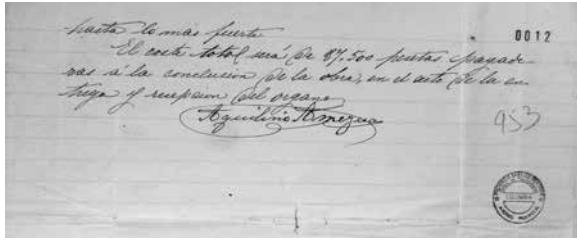 hasta lo más fuerte
0012
El coste total será de 87.500 pesetas pagade-
ras á la conclusion de la obra, en el acto de la en-
trega y recepcion del organo
Aquilino Amezua
953